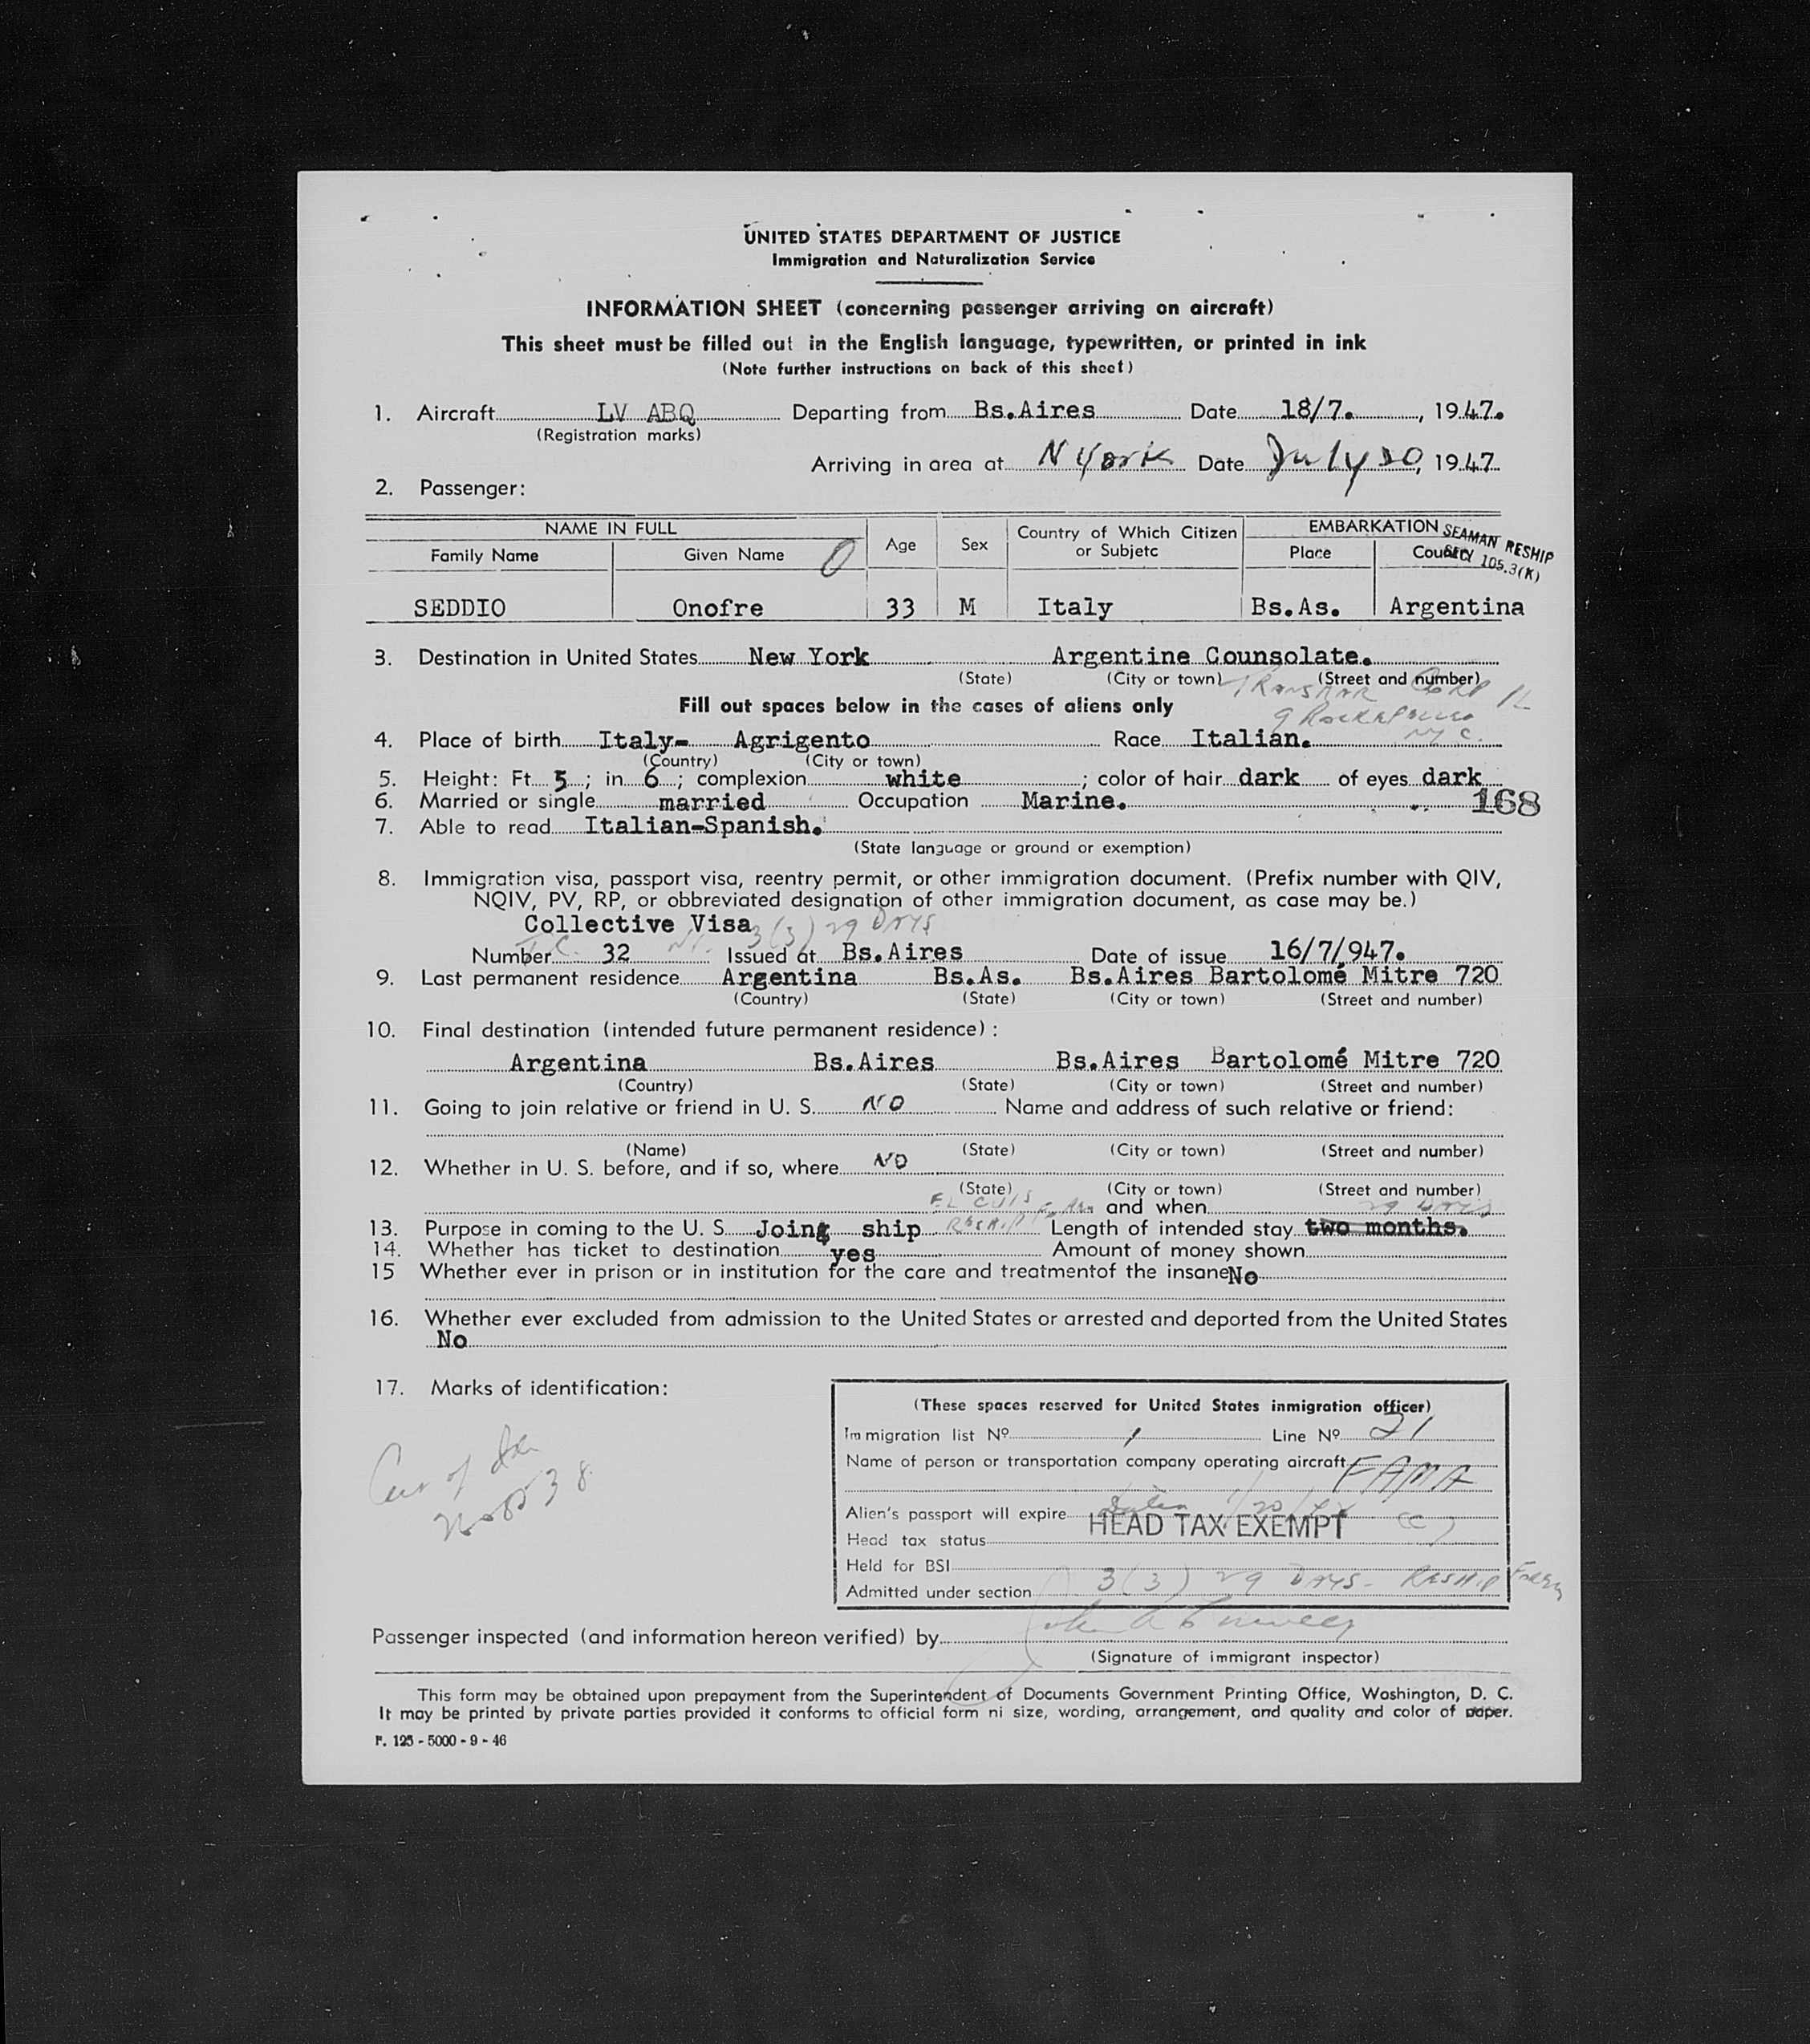 UNITED STATES DEPARTMENT OF JUSTICE
Immigration and Naturalization Service
INFORMATION SHEET (concerning passenger arriving on aircraft)
This sheet must be filled out in the English language, typewritten, or printed in ink
(Note further instructions on back of this sheet)
1. Aircraft LV ABQ Departing from Bs.Aires Date 18/7. , 1947.
(Registration marks)
Arriving in area at N York Date July 20, 1947
2. Passenger:
NAME IN FULL Age Sex Country of Which Citizen or Subjetc EMBARKATION
SEAMAN RESHIP
SEC. 105.3(K)
Family Name Given Name O Place Country
SEDDIO Onofre 33 M Italy Bs.As. Argentina
3. Destination in United States New York Argentine Counsolate.
(State) (City or town) (Street and number)
Fill out spaces below in the cases of aliens only
N.Y.C.
4. Place of birth Italy- Agrigento Race Italian.
(Country) (City or town)
5. Height: Ft. 5 ; in 6 ; complexion white ; color of hair dark of eyes dark
6. Married or single married Occupation Marine.
168
7. Able to read Italian-Spanish.
(State language or ground or exemption)
8. Immigration visa, passport visa, reentry permit, or other immigration document. (Prefix number with QIV,
NQIV, PV, RP, or obbreviated designation of other immigration document, as case may be.)
Collective Visa 3(3) 29 DAYS
Number 32 Issued at Bs.Aires Date of issue 16/7/947.
9. Last permanent residence Argentina Bs.As. Bs.Aires Bartolomé Mitre 720
(Country) (State) (City or town) (Street and number)
10. Final destination (intended future permanent residence) :
Argentina Bs.Aires Bs.Aires Bartolomé Mitre 720
(Country) (State) (City or town) (Street and number)
11. Going to join relative or friend in U. S. NO Name and address of such relative or friend:
(Name) (State) (City or town) (Street and number)
12. Whether in U. S. before, and if so, where NO
(State) (City or town) (Street and number)
and when 29 DAYS
13. Purpose in coming to the U. S. Joing ship RESHIP Length of intended stay two months.
14. Whether has ticket to destination yes Amount of money shown
15 Whether ever in prison or in institution for the care and treatmentof the insane No
16. Whether ever excluded from admission to the United States or arrested and deported from the United States
No
17. Marks of identification:
(These spaces reserved for United States inmigration officer)
Immigration list Nº 1 Line Nº 21
Name of person or transportation company operating aircraft FAMA
Alien's passport will expire
HEAD TAX EXEMPT
Head tax status
Held for BSI
Admitted under section 3(3) 29 DAYS - RESHIP
Passenger inspected (and information hereon verified) by
(Signature of immigrant inspector)
This form may be obtained upon prepayment from the Superintendent of Documents Government Printing Office, Washington, D. C.
It may be printed by private parties provided it conforms to official form ni size, wording, arrangement, and quality and color of paper.
F. 125 - 5000 - 9 - 46